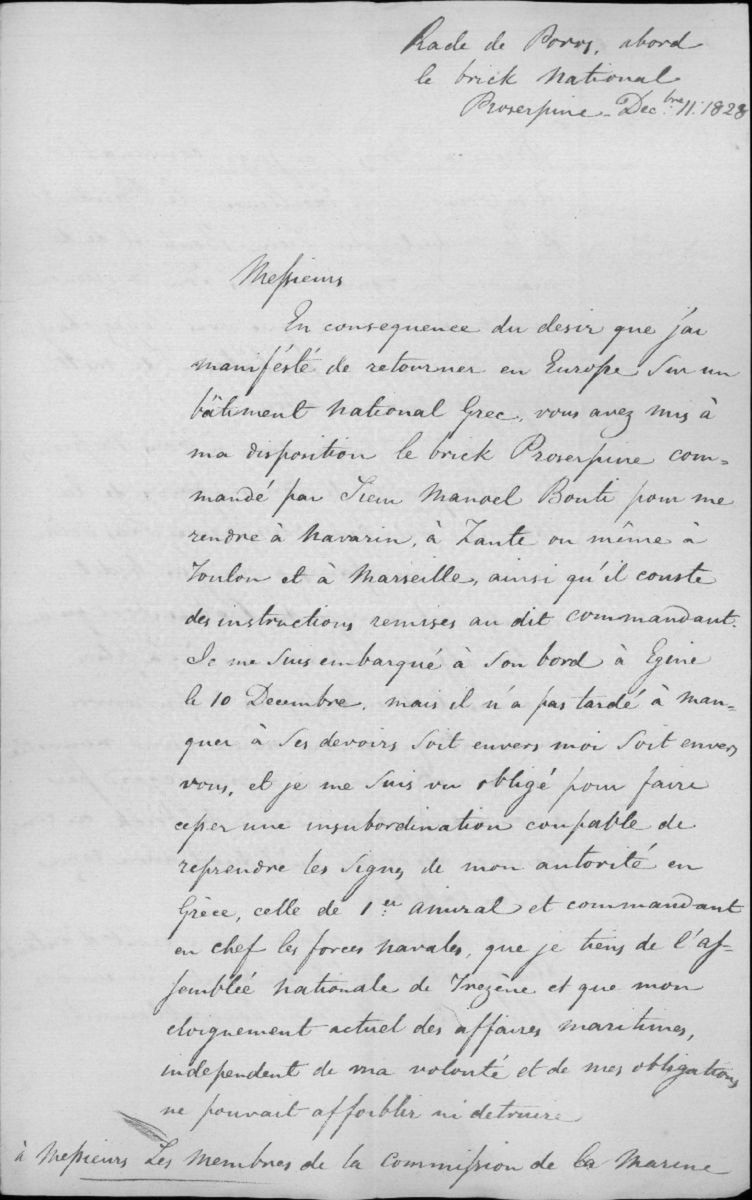 Rade de Poros, abord
le brick National
Proserpine. Decbre 11. 1828
Messieurs
En consequence du desir que j'ai
manifésté de retourner en Europe sur un
bâtiment National Grec, vous avez mis à
ma disposition le brick Proserpine com=
mandé par Sieur Manoel Bouti pour me
rendre à Navarin, à Zante ou même à
Toulon et à Marseille, ainsi qu'il conste
des instructions remises au dit commandant.
Je me suis embarqué à son bord à Egine
le 10 Decembre, mais il n'a pas tardé à man=
quer à ses devoirs soit envers moi soit envers
vous, et je me suis vu obligé pour faire
cesser une insubordination coupable de
reprendre les signes de mon autorité en
Grèce, celle de 1er Amiral et commandant
en chef les forces navales, que je tiens de l'as=
semblée nationale de Trezène et que mon
eloignement actuel des affaires maritimes,
independent de ma volonté et de mes obligations
ne pouvait affoiblir ni detruire
à Messieurs Les Membres de la Commission de la Marine